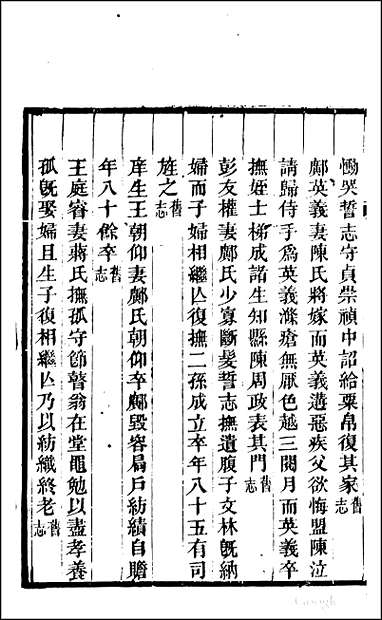 慟哭誓志守貞崇禎中詔給粟帛復其家舊志
鄺英義妻陳氏將嫁而英義遘惡疾父欲悔盟陳泣
請歸侍手為英義滌瘡無厭色越三閱月而英義卒
撫姪士梯成諸生知縣陳周政表其門舊志
彭友權妻鄺氏少寡斷髮誓志撫遺腹子文林旣納
婦而子婦相繼亾復撫二孫成立卒年八十五有司
旌之舊志
庠生王朝仰妻鄺氏朝仰卒鄺毀容扃戶紡績自贍
年八十餘卒舊志
王庭睿妻蔣氏撫孤守節瞽翁在堂黽勉以盡孝養
孤旣娶婦且生子復相繼亾乃以紡織終老舊志